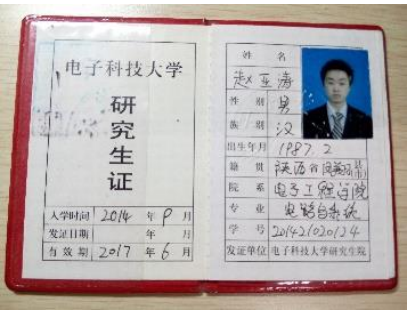 电子科技大学
研究生证
入学时间 2014 年 9 月
发证日期 年 月
有效期 2017 年 6 月
姓 名
赵亚涛
性 别 男
族 别 汉
出生年月 1987.2
籍 贯 陕西省 县(市)
院 系 电子工程学院
专 业 电路与系统
学 号 201421020124
发证单位 电子科技大学研究生院